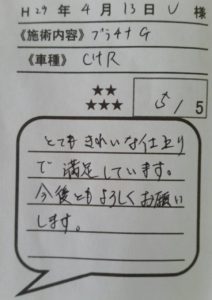 H29年 4月 13日 U 様
《施術内容》プラチナG
《車種》CHR
★★
★★★
5/5
とてもきれいな仕上り
で満足しています。
今後ともよろしくお願い
します。